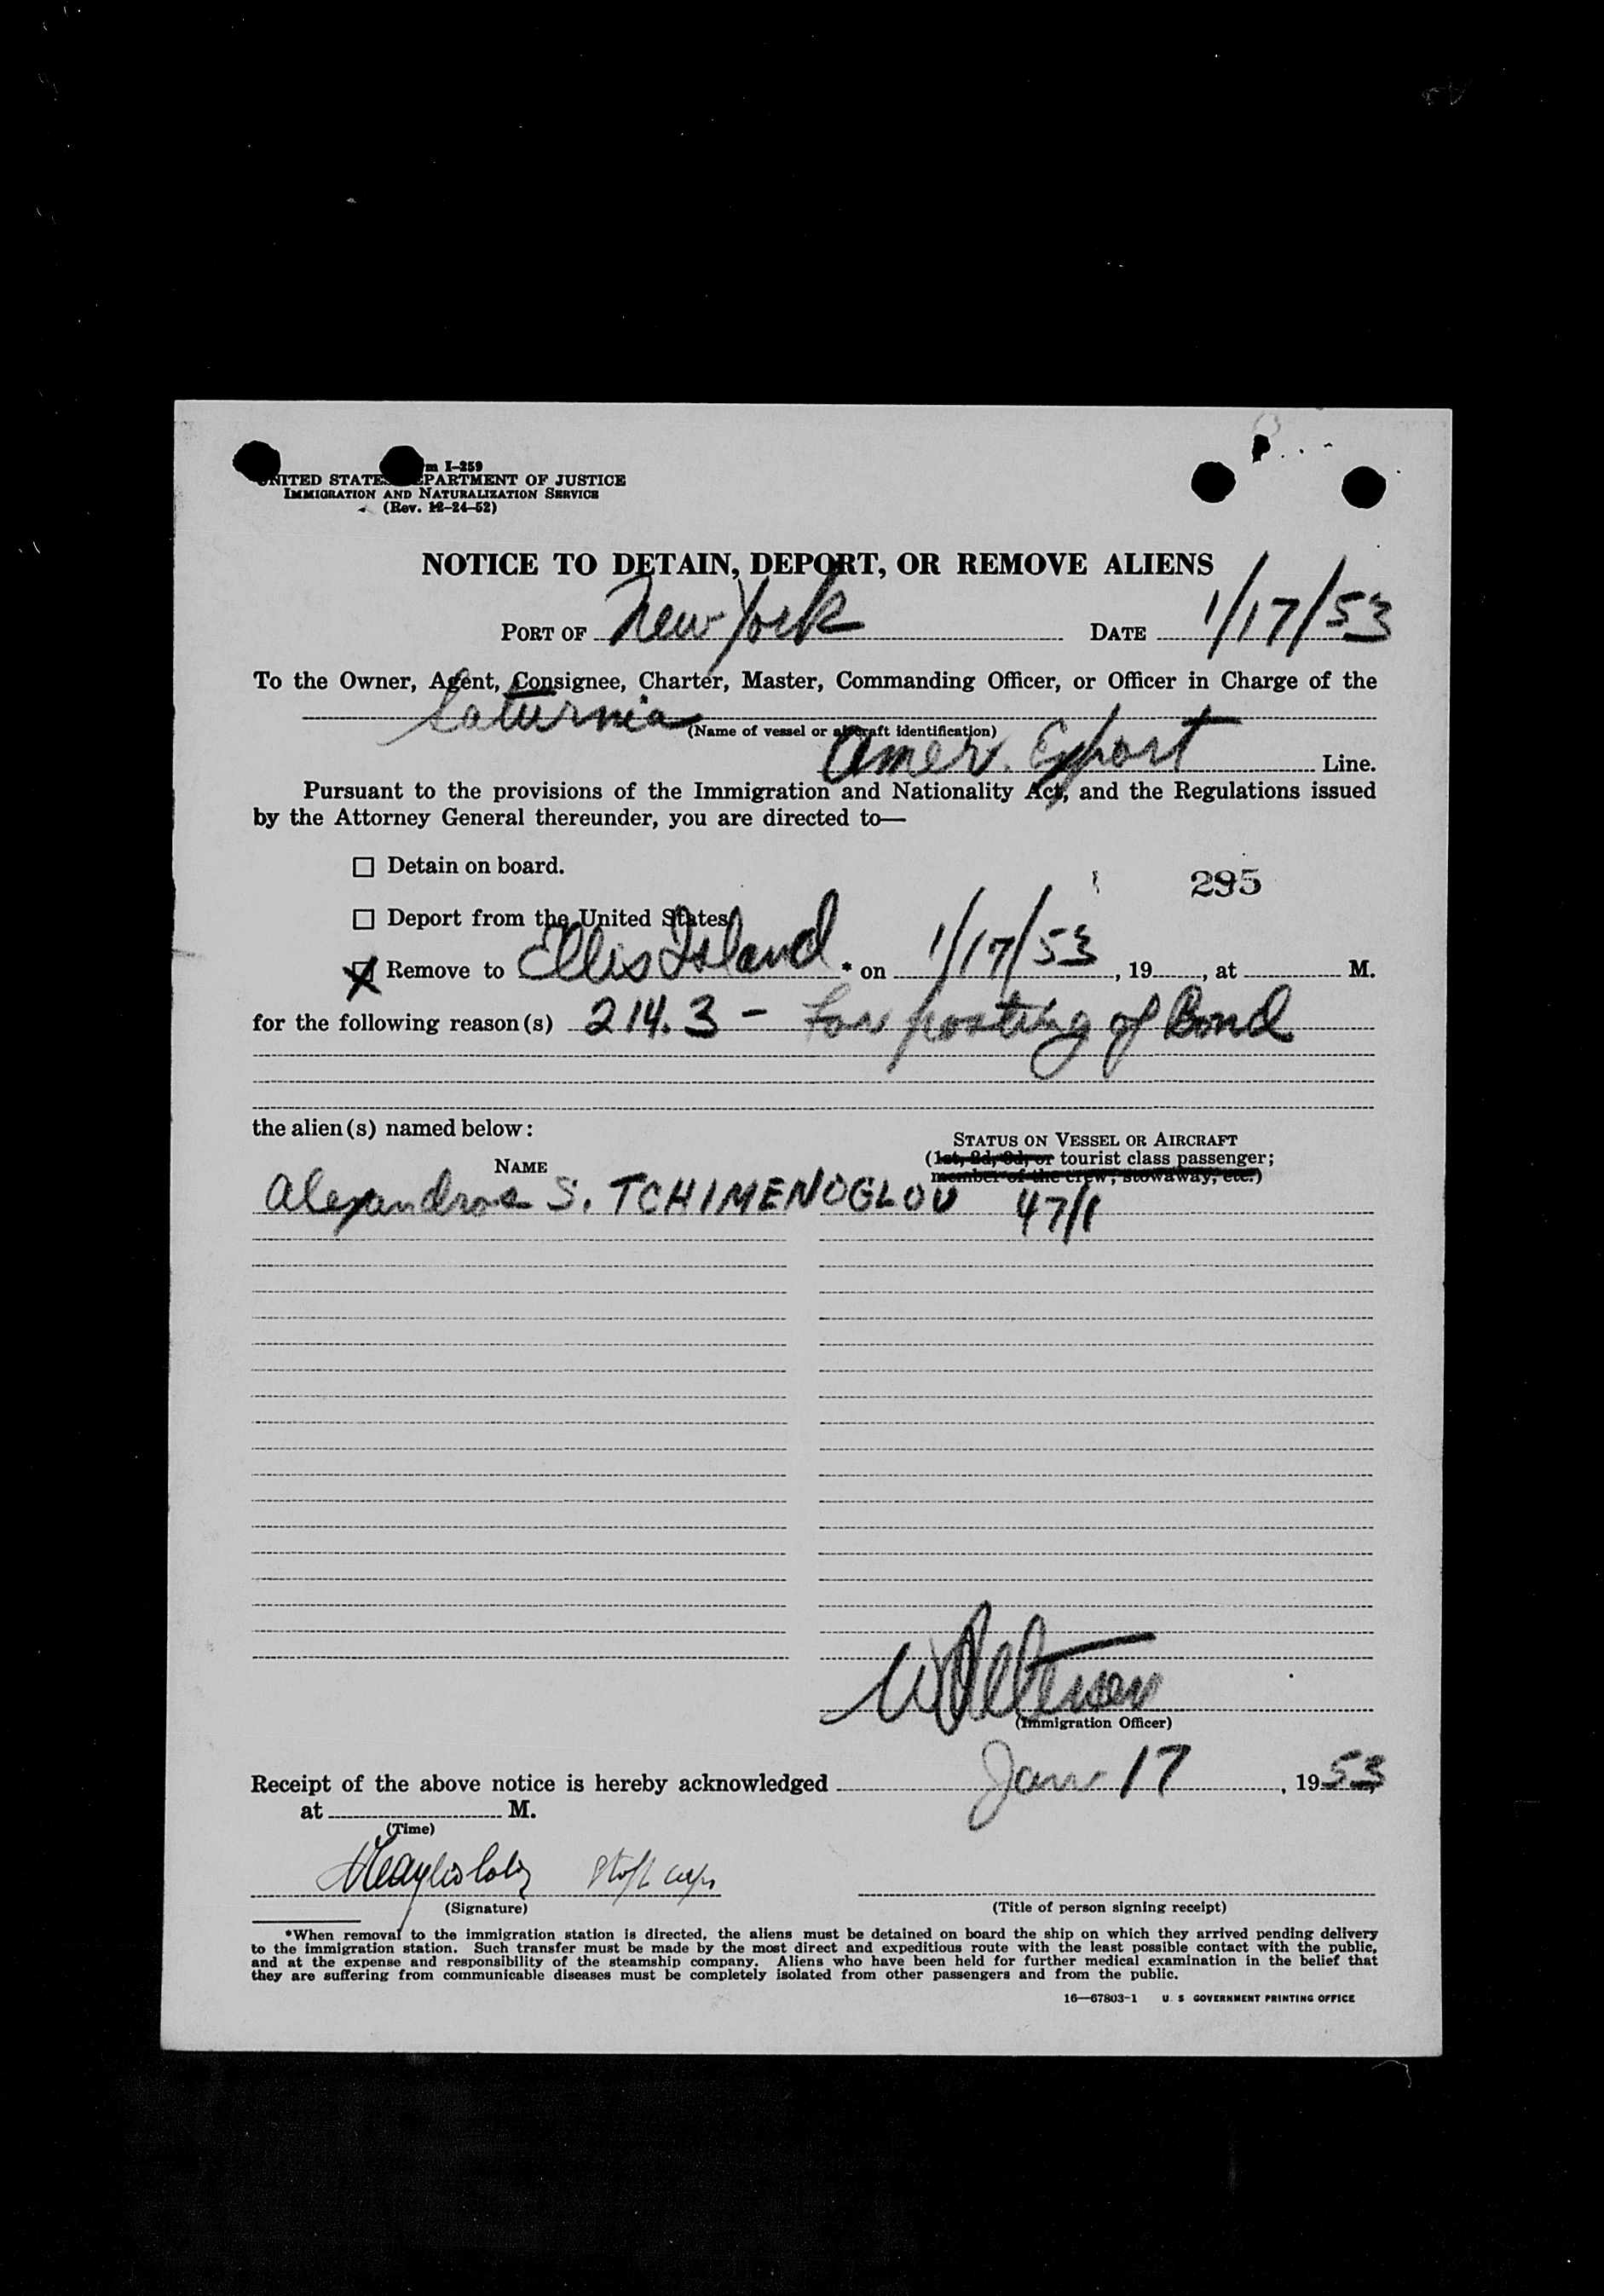 m I-259
UNITED STATES DEPARTMENT OF JUSTICE
IMMIGRATION AND NATURALIZATION SERVICE
(Rev. 12-24-52)
NOTICE TO DETAIN, DEPORT, OR REMOVE ALIENS
PORT OF New York DATE 1/17/53
To the Owner, Agent, Consignee, Charter, Master, Commanding Officer, or Officer in Charge of the
Saturnia
(Name of vessel or aircraft identification)
Amer. Export Line.
Pursuant to the provisions of the Immigration and Nationality Act, and the Regulations issued
by the Attorney General thereunder, you are directed to—
☐ Detain on board.
295
☐ Deport from the United States
☒ Remove to Ellis Island * on 1/17/53, 19, at M.
for the following reason(s) 214.3 - For posting of Bond
the alien(s) named below:
STATUS ON VESSEL OR AIRCRAFT
(1st, 2d, 3d, or tourist class passenger;
member of the crew; stowaway, etc.)
NAME
Alexandros S. TCHIMENOGLOU 47/1
(Immigration Officer)
Receipt of the above notice is hereby acknowledged Jan 17, 1953
at M.
(Time)
(Signature) (Title of person signing receipt)
*When removal to the immigration station is directed, the aliens must be detained on board the ship on which they arrived pending delivery
to the immigration station. Such transfer must be made by the most direct and expeditious route with the least possible contact with the public,
and at the expense and responsibility of the steamship company. Aliens who have been held for further medical examination in the belief that
they are suffering from communicable diseases must be completely isolated from other passengers and from the public.
16—67803-1 U. S GOVERNMENT PRINTING OFFICE